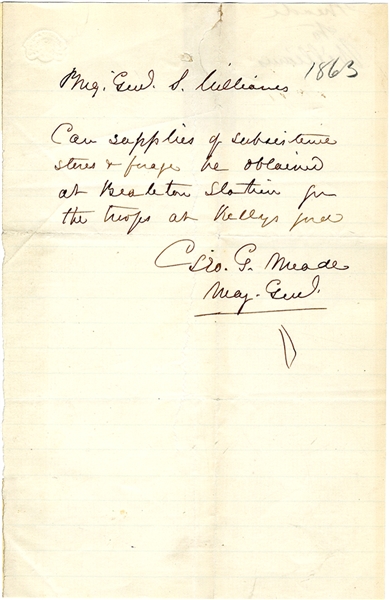 1863
Brig. Genl. S. Williams
Can supplies of subsistence
stores & forage be obtained
at Bealeton Station for
the troops at Kellys ford
Geo. G. Meade
Maj. Genl.